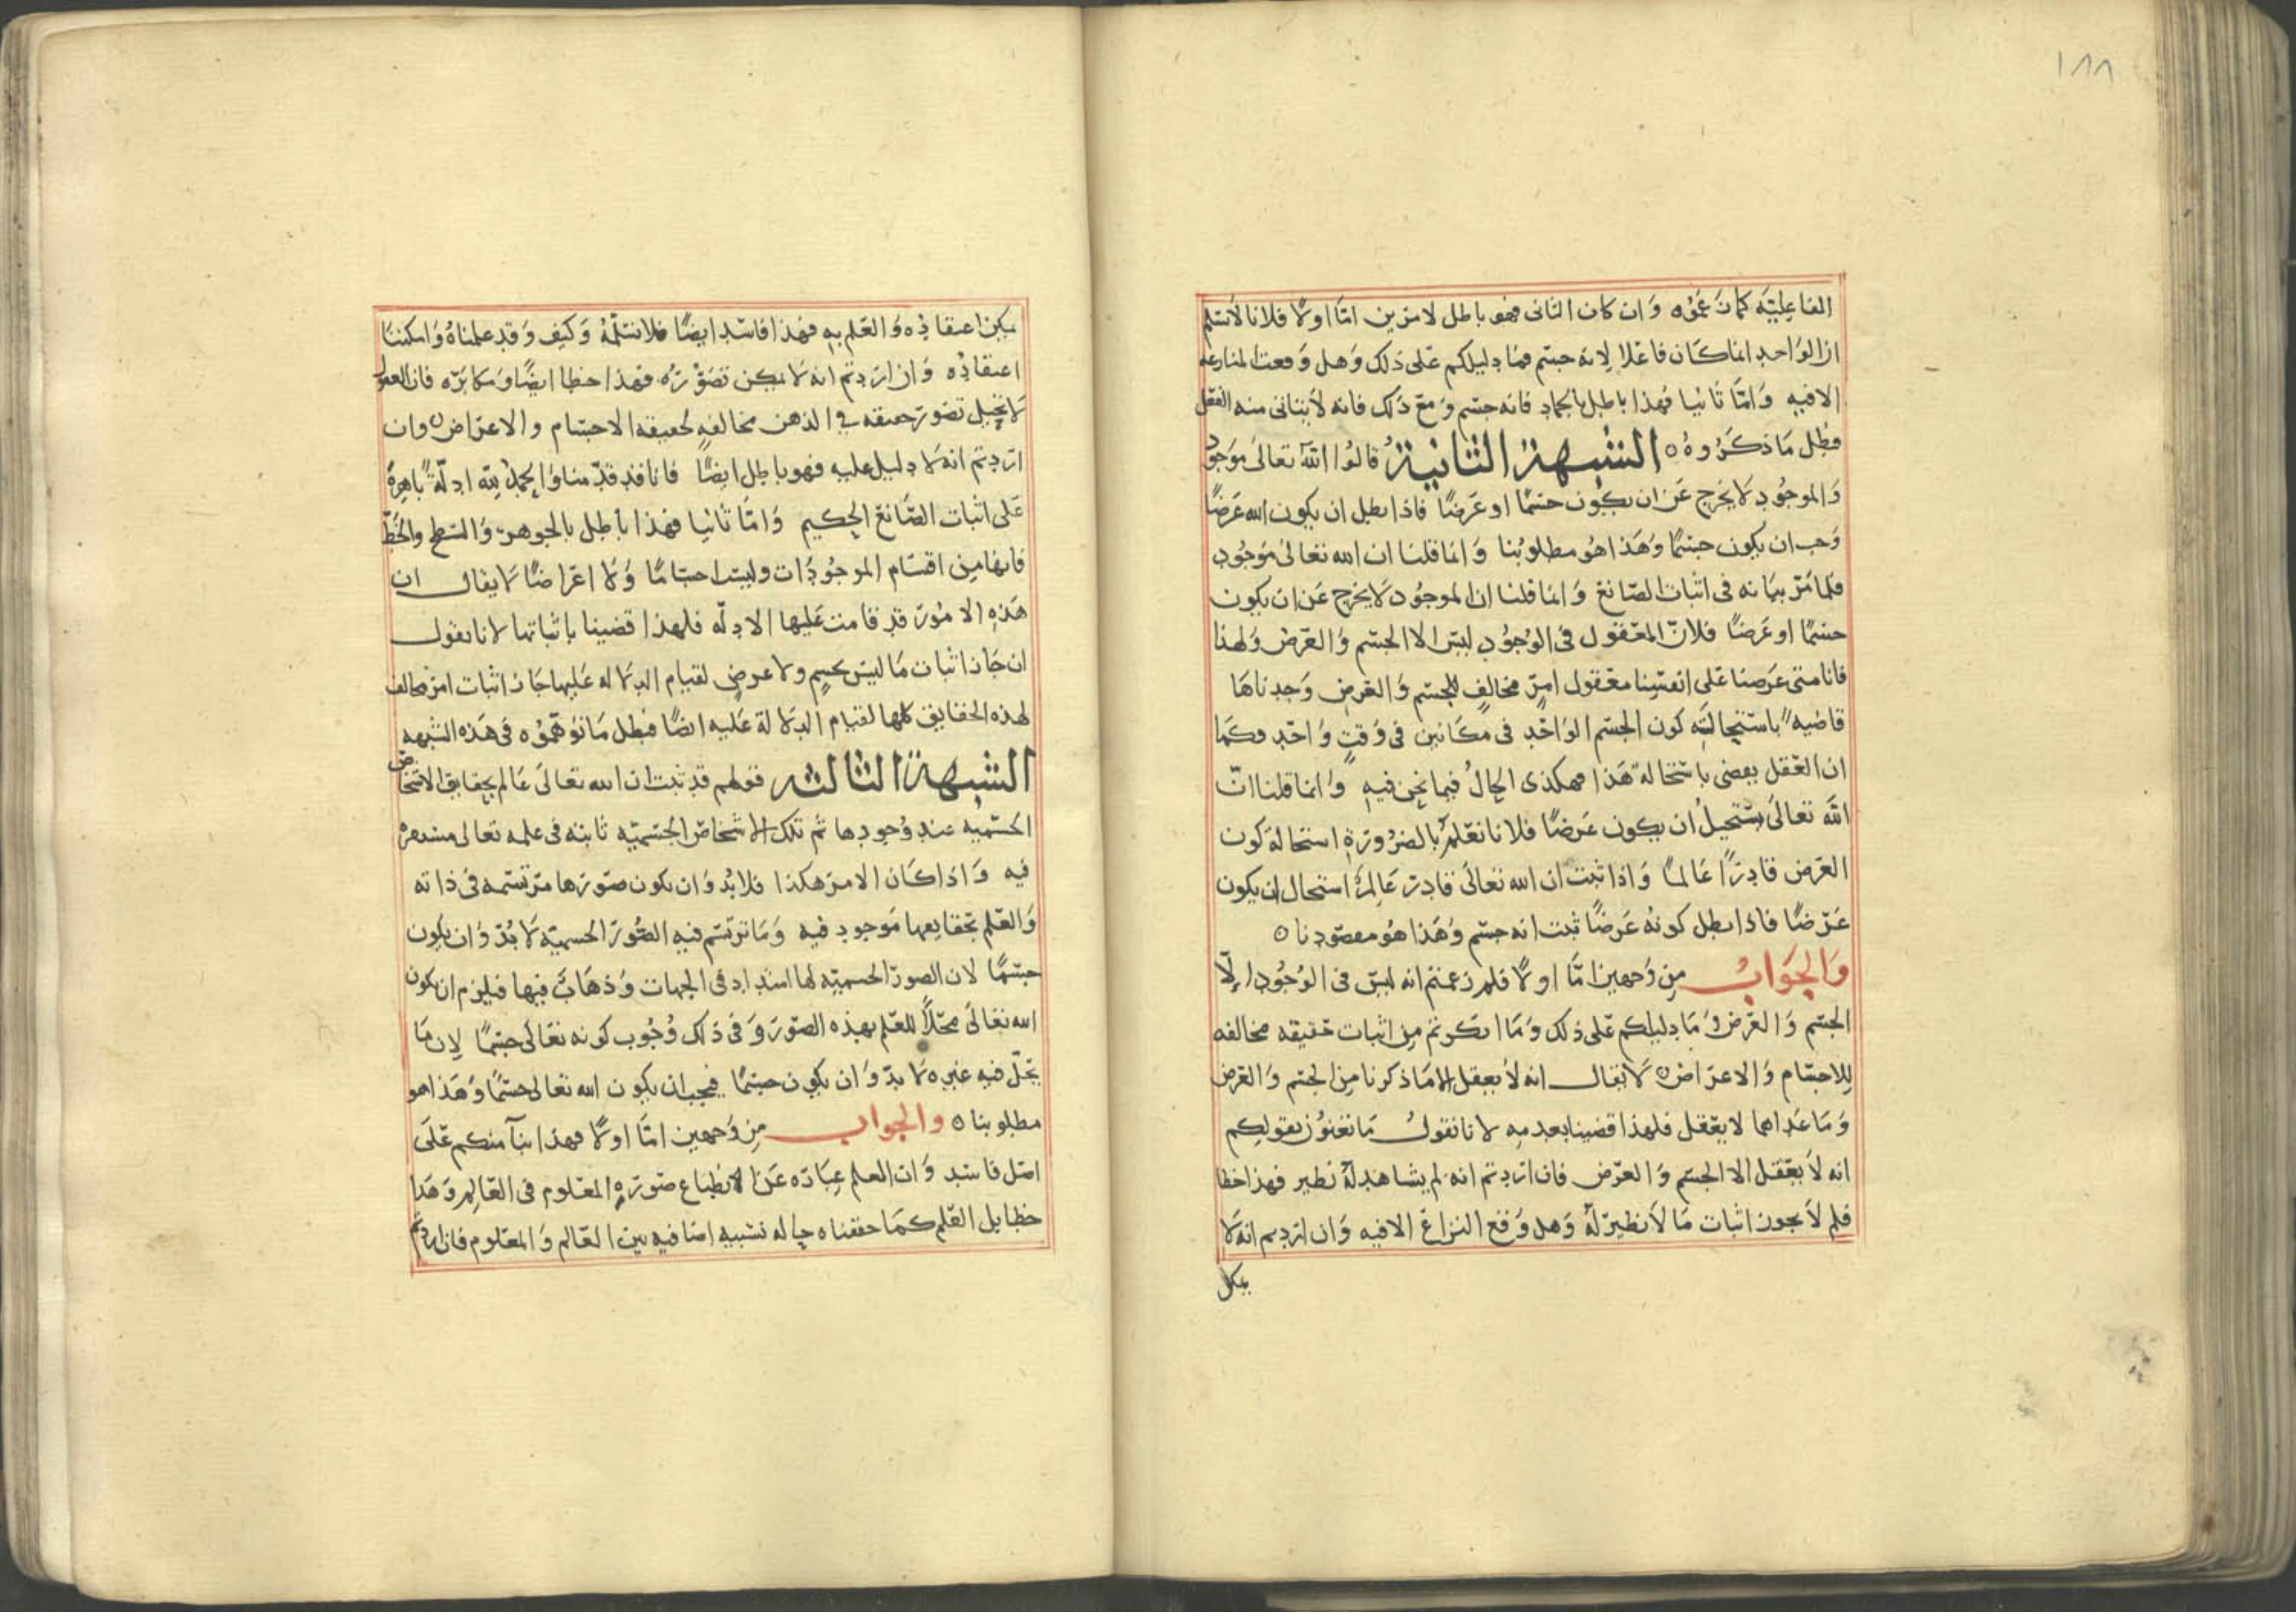 ١٨٨
الفاعلية كما زعموه وان كان الثاني فهو باطل لامرين امّا اولًا فلانا لا نسلم
ان الواحد انما كان فاعلا لانه جسم فما دليلكم على ذلك وهل وقعت المنازعة
الا فيه وامّا ثانيا فهذا باطل بالجماد فانه جسم ومع ذلك فانه لا يتاتى منه الفعل
فبطل ما ذكروه ه الشبهة الثانية قالوا الله تعالى موجود
والموجود لا يخرج عن ان يكون جسمًا او عرضًا فاذا بطل ان يكون الله عرضًا
وجب ان يكون جسمًا وهذا هو مطلوبنا وانما قلنا ان الله تعالى موجود
فلما مرّ بيانه في اثبات الصانع وانما قلنا ان الموجود لا يخرج عن ان يكون
جسمًا او عرضًا فلانّ المعقول في الوجود ليس الا الجسم والعرض ولهذا
فانا متى عرضنا على انفسنا معقول امرٍ مخالفٍ للجسم والعرض وجدناها
قاضية باستحالته كون الجسم الواحد في مكانين في وقتٍ واحد وكما
ان العقل يقضى باستحالة هذا فهكذى الحال فيما نحن فيه وانما قلنا انّ
الله تعالى يستحيل ان يكون عرضًا فلانا نعلم بالضرورة استحالة كون
العرض قادرًا عالمًا واذا ثبت ان الله تعالى قادر عالم استحال ان يكون
عرضًا فاذا بطل كونه عرضًا ثبت انه جسم وهذا هو مقصودنا ه
والجواب من وجهين امّا اولًا فلم زعمتم انه ليس في الوجود الّا
الجسم والعرض وما دليلكم على ذلك وما انكرتم من اثبات حقيقه مخالفه
للاجسام والاعراض ه لا يقال انه لا يعقل الا ما ذكرنا من الجسم والعرض
وما عداهما لا يعقل فلهذا قضينا بعدمه لانا نقول ما تعنون بقولكم
انه لا يعقل الا الجسم والعرض فان اردتم انه لم يشاهد له نظير فهذا خطا
فلم لا يجوز اثبات ما لا نظير له وهل وقع النزاع الا فيه وان اردتم انه لا
يمكن
يمكن اعتقاده والعلم به فهذا فاسد ايضًا فلا نسلمه وكيف وقد علمناه وامكننا
اعتقاده وان اردتم انه لا يمكن تصوره فهذا خطا ايضًا ومكابره فان العقول
لا تحيل تصور حقيقه في الذهن مخالفه لحقيقة الاجسام والاعراض ه وان
اردتم انه لا دليل عليه فهو باطل ايضًا فانا قد قدّمنا والحمد لله ادلّة باهرة
على اثبات الصانع الحكيم وامّا ثانيا فهذا باطل بالجوهر والسطح والخطّ
فانها من اقسام الموجودات وليست اجسامًا ولا اعراضًا لا يقال ان
هذه الامور قد قامت عليها الادلّه فلهذا قضينا باثباتها لانا نقول
ان جاز اثبات ما ليس بجسم ولا عرض لقيام الدلاله عليها جاز اثبات امر مخالف
لهذه الحقايق كلها لقيام الدلالة عليه ايضًا فبطل ما توهموه في هذه الشبهه
الشبهة الثالثه قولهم قد ثبت ان الله تعالى عالم بحقايق الاشخاص
الجسميه عند وجودها ثم تلك الاشخاص الجسميّه ثابته في علمه تعالى
فيه واذا كان الامر هكذا فلا بد وان يكون صورها مرتسمه في ذاته
والعلم بحقايقها موجود فيه وما ترتسم فيه الصور الجسميّه لا بدّ وان يكون
جسمًا لان الصور الجسميّه لها امتداد في الجهات وذهاب فيها فيلزم ان يكون
الله تعالى محلًا للعلم بهذه الصور وفي ذلك وجوب كونه تعالى جسمًا لان ما
يحلّ فيه غيره لا بدّ وان يكون جسمًا فيجب ان يكون الله تعالى جسمًا وهذا هو
مطلوبنا ه والجواب من وجهين امّا اولًا فهذا بناء منكم على
اصل فاسد وان العلم عباره عن انطباع صورة المعلوم في العالم وهذا
خطا بل العلم كما حققناه حاله نسبيه اضافيه بين العالم والمعلوم فان اردتم